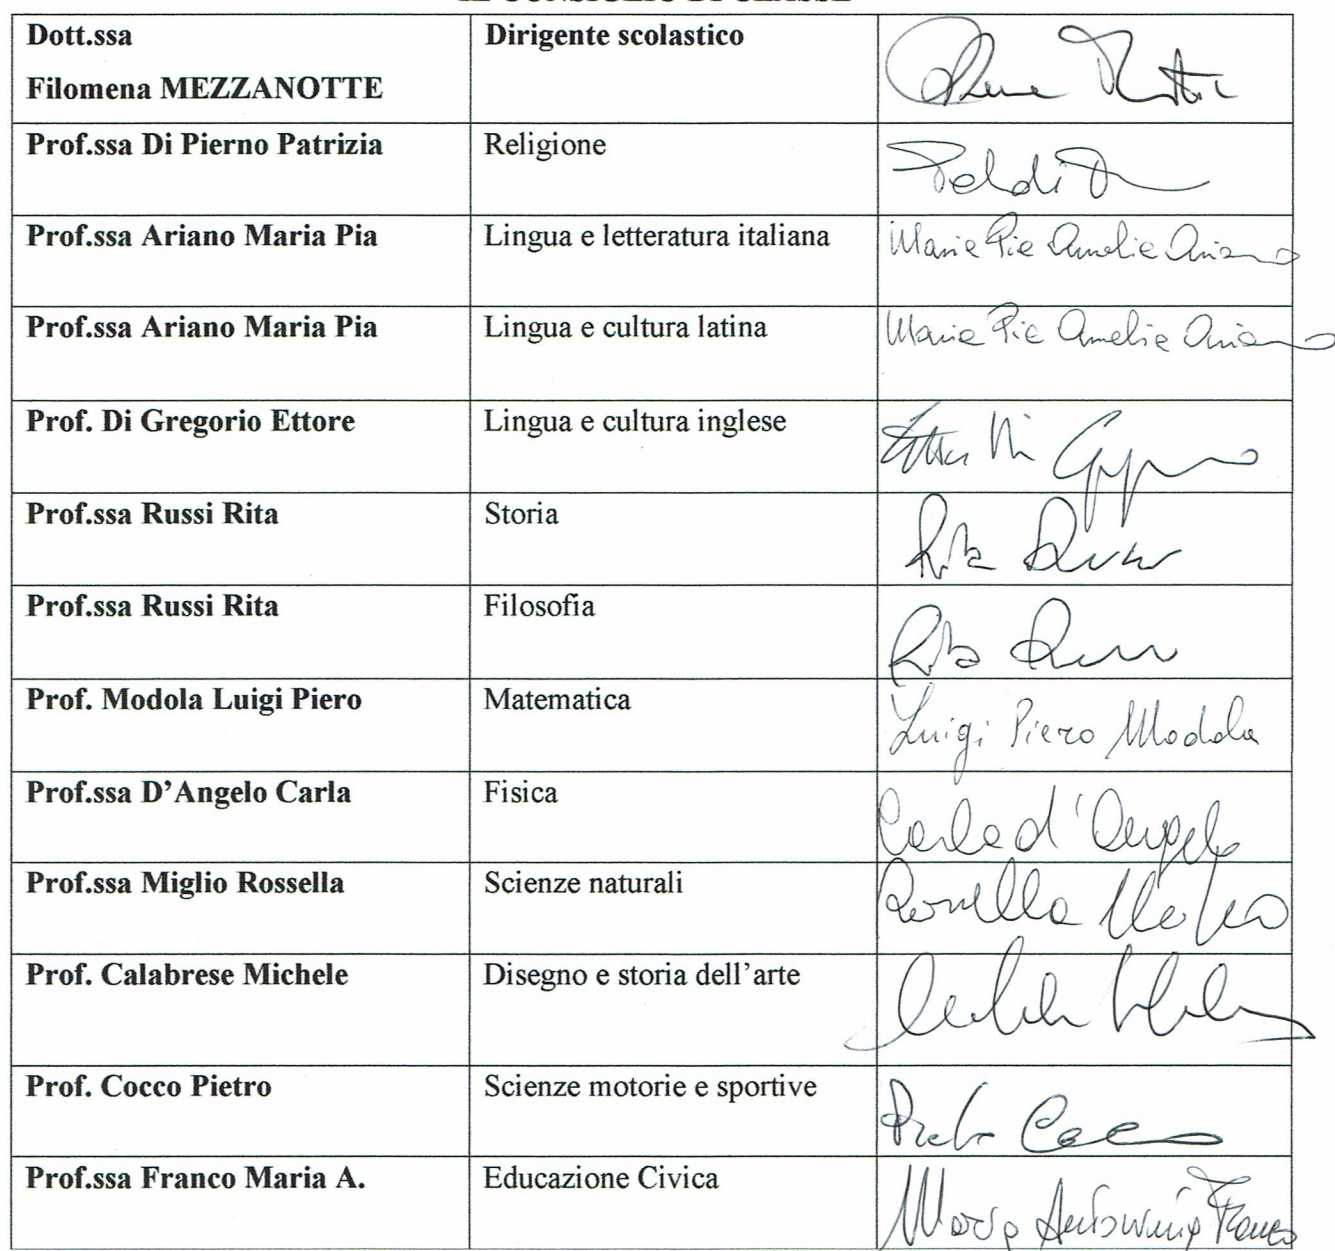 IL CONSIGLIO DI CLASSE
Dott.ssa
Filomena MEZZANOTTE
Dirigente scolastico
Prof.ssa Di Pierno Patrizia
Religione
Prof.ssa Ariano Maria Pia
Lingua e letteratura italiana
Maria Pia Amelia Ariano
Prof.ssa Ariano Maria Pia
Lingua e cultura latina
Maria Pia Amelia Ariano
Prof. Di Gregorio Ettore
Lingua e cultura inglese
Prof.ssa Russi Rita
Storia
Rita Russi
Prof.ssa Russi Rita
Filosofia
Rita Russi
Prof. Modola Luigi Piero
Matematica
Luigi Piero Modola
Prof.ssa D'Angelo Carla
Fisica
Carla d'Angelo
Prof.ssa Miglio Rossella
Scienze naturali
Rossella Miglio
Prof. Calabrese Michele
Disegno e storia dell'arte
Prof. Cocco Pietro
Scienze motorie e sportive
Pietro Cocco
Prof.ssa Franco Maria A.
Educazione Civica
Maria Antonina Franco